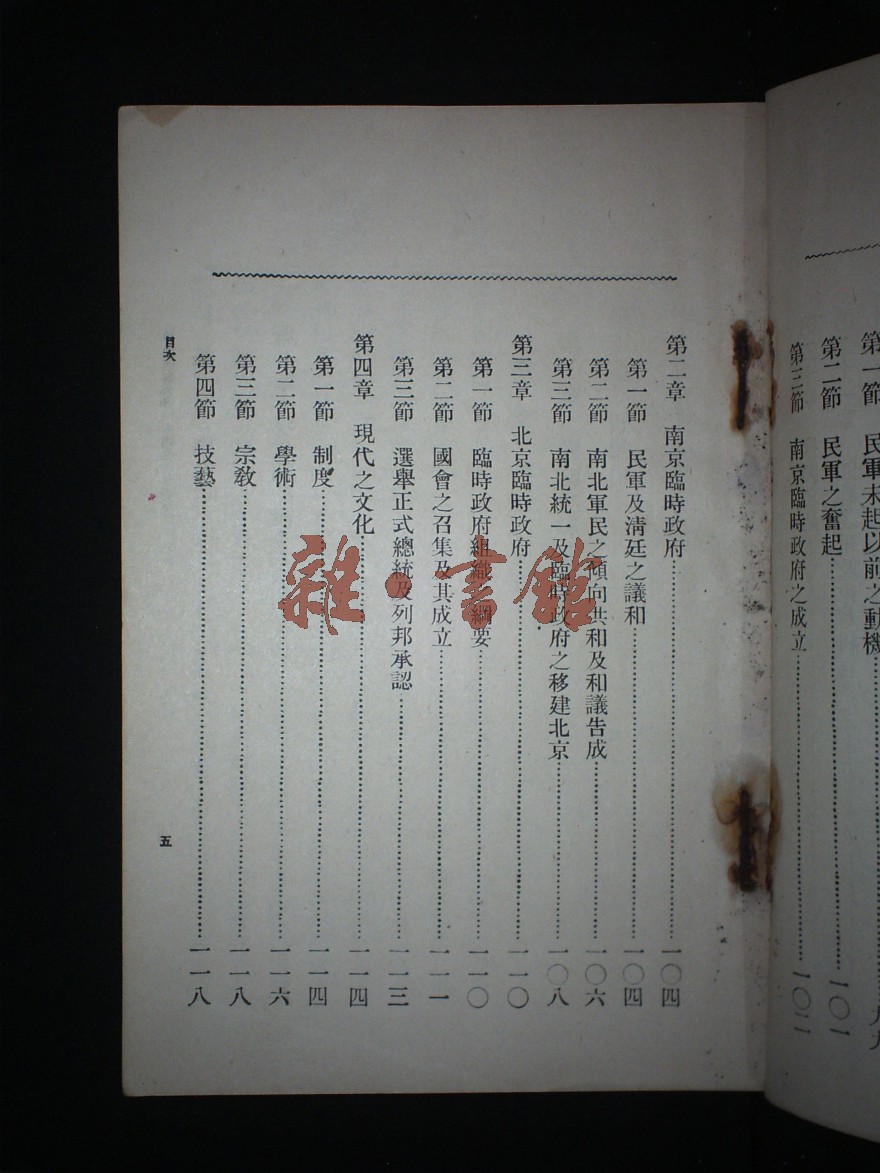 第一節　民軍未起以前之動機………九九
第二節　民軍之奮起………一〇一
第三節　南京臨時政府之成立………一〇二
第二章　南京臨時政府………一〇四
第一節　民軍及清廷之議和………一〇四
第二節　南北軍民之傾向共和及和議告成………一〇六
第三節　南北統一及臨時政府之移建北京………一〇八
第三章　北京臨時政府………一一〇
第一節　臨時政府組織之綱要………一一〇
第二節　國會之召集及其成立………一一一
第三節　選舉正式總統及列邦承認………一一三
第四章　現代之文化………一一四
第一節　制度………一一四
第二節　學術………一一六
第三節　宗教………一一八
第四節　技藝………一一八
目次
五
雜·書館